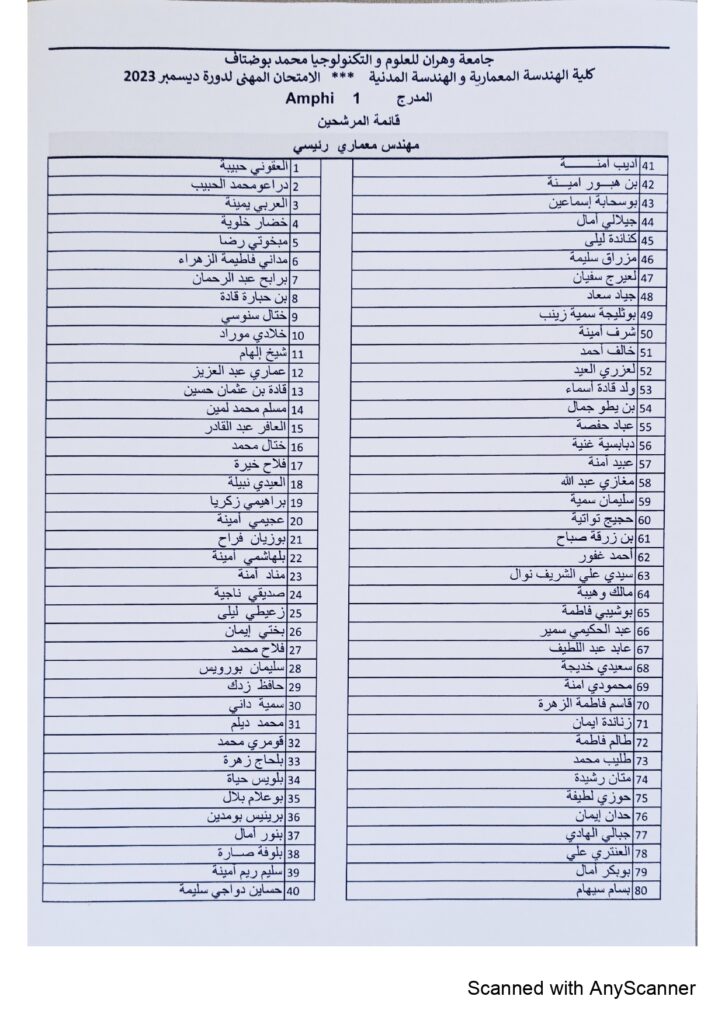 جامعة وهران للعلوم و التكنولوجيا محمد بوضياف
كلية الهندسة المعمارية و الهندسة المدنية *** الامتحان المهني لدورة ديسمبر 2023
المدرج Amphi 1
قائمة المرشحين
مهندس معماري رئيسي
1 العقوني حبيبة
2 دراعومحمد الحبيب
3 العربي يمينة
4 خضار خلوية
5 مبخوتي رضا
6 مداني فاطيمة الزهراء
7 برابح عبد الرحمان
8 بن حبارة قادة
9 ختال سنوسي
10 خلادي موراد
11 شيخ إلهام
12 عماري عبد العزيز
13 قادة بن عثمان حسين
14 مسلم محمد لمين
15 العافر عبد القادر
16 ختال محمد
17 فلاح خيرة
18 العيدي نبيلة
19 براهيمي زكريا
20 عجيمي أمينة
21 بوزيان فراح
22 بلهاشمي أمينة
23 مناد أمنة
24 صديقي ناجية
25 زعيطي ليلى
26 بختي إيمان
27 فلاح محمد
28 سليمان بورويس
29 حافظ زدك
30 سمية داني
31 محمد ديلم
32 قومري محمد
33 بلحاج زهرة
34 بلويس حياة
35 بوعلام بلال
36 برينيس بومدين
37 بنور أمال
38 بلوفة صـــارة
39 سليم ريم أمينة
40 حساين دواجي سليمة
41 أديب أمنـــــــة
42 بن هبـــور امينـة
43 بوسحابة إسماعين
44 جيلالي أمال
45 كناندة ليلى
46 مزراق سليمة
47 لعيرج سفيان
48 جياد سعاد
49 بوثليجة سمية زينب
50 شرف أمينة
51 خالف أحمد
52 لعزري العيد
53 ولد قادة أسماء
54 بن يطو جمال
55 عباد حفصة
56 دبابسية غنية
57 عبيد أمنة
58 مغازي عبد الله
59 سليمان سمية
60 حجيج تواتية
61 بن زرقة صباح
62 أحمد غفور
63 سيدي علي الشريف نوال
64 مالك وهيبة
65 بوشيبي فاطمة
66 عبد الحكيمي سمير
67 عابد عبد اللطيف
68 سعيدي خديجة
69 محمودي امنة
70 قاسم فاطمة الزهرة
71 زناندة ايمان
72 طالم فاطمة
73 طليب محمد
74 متان رشيدة
75 حوزي لطيفة
76 حدان إيمان
77 جبالي الهادي
78 العنتري علي
79 بوبكر أمال
80 بسام سيهام
Scanned with AnyScanner